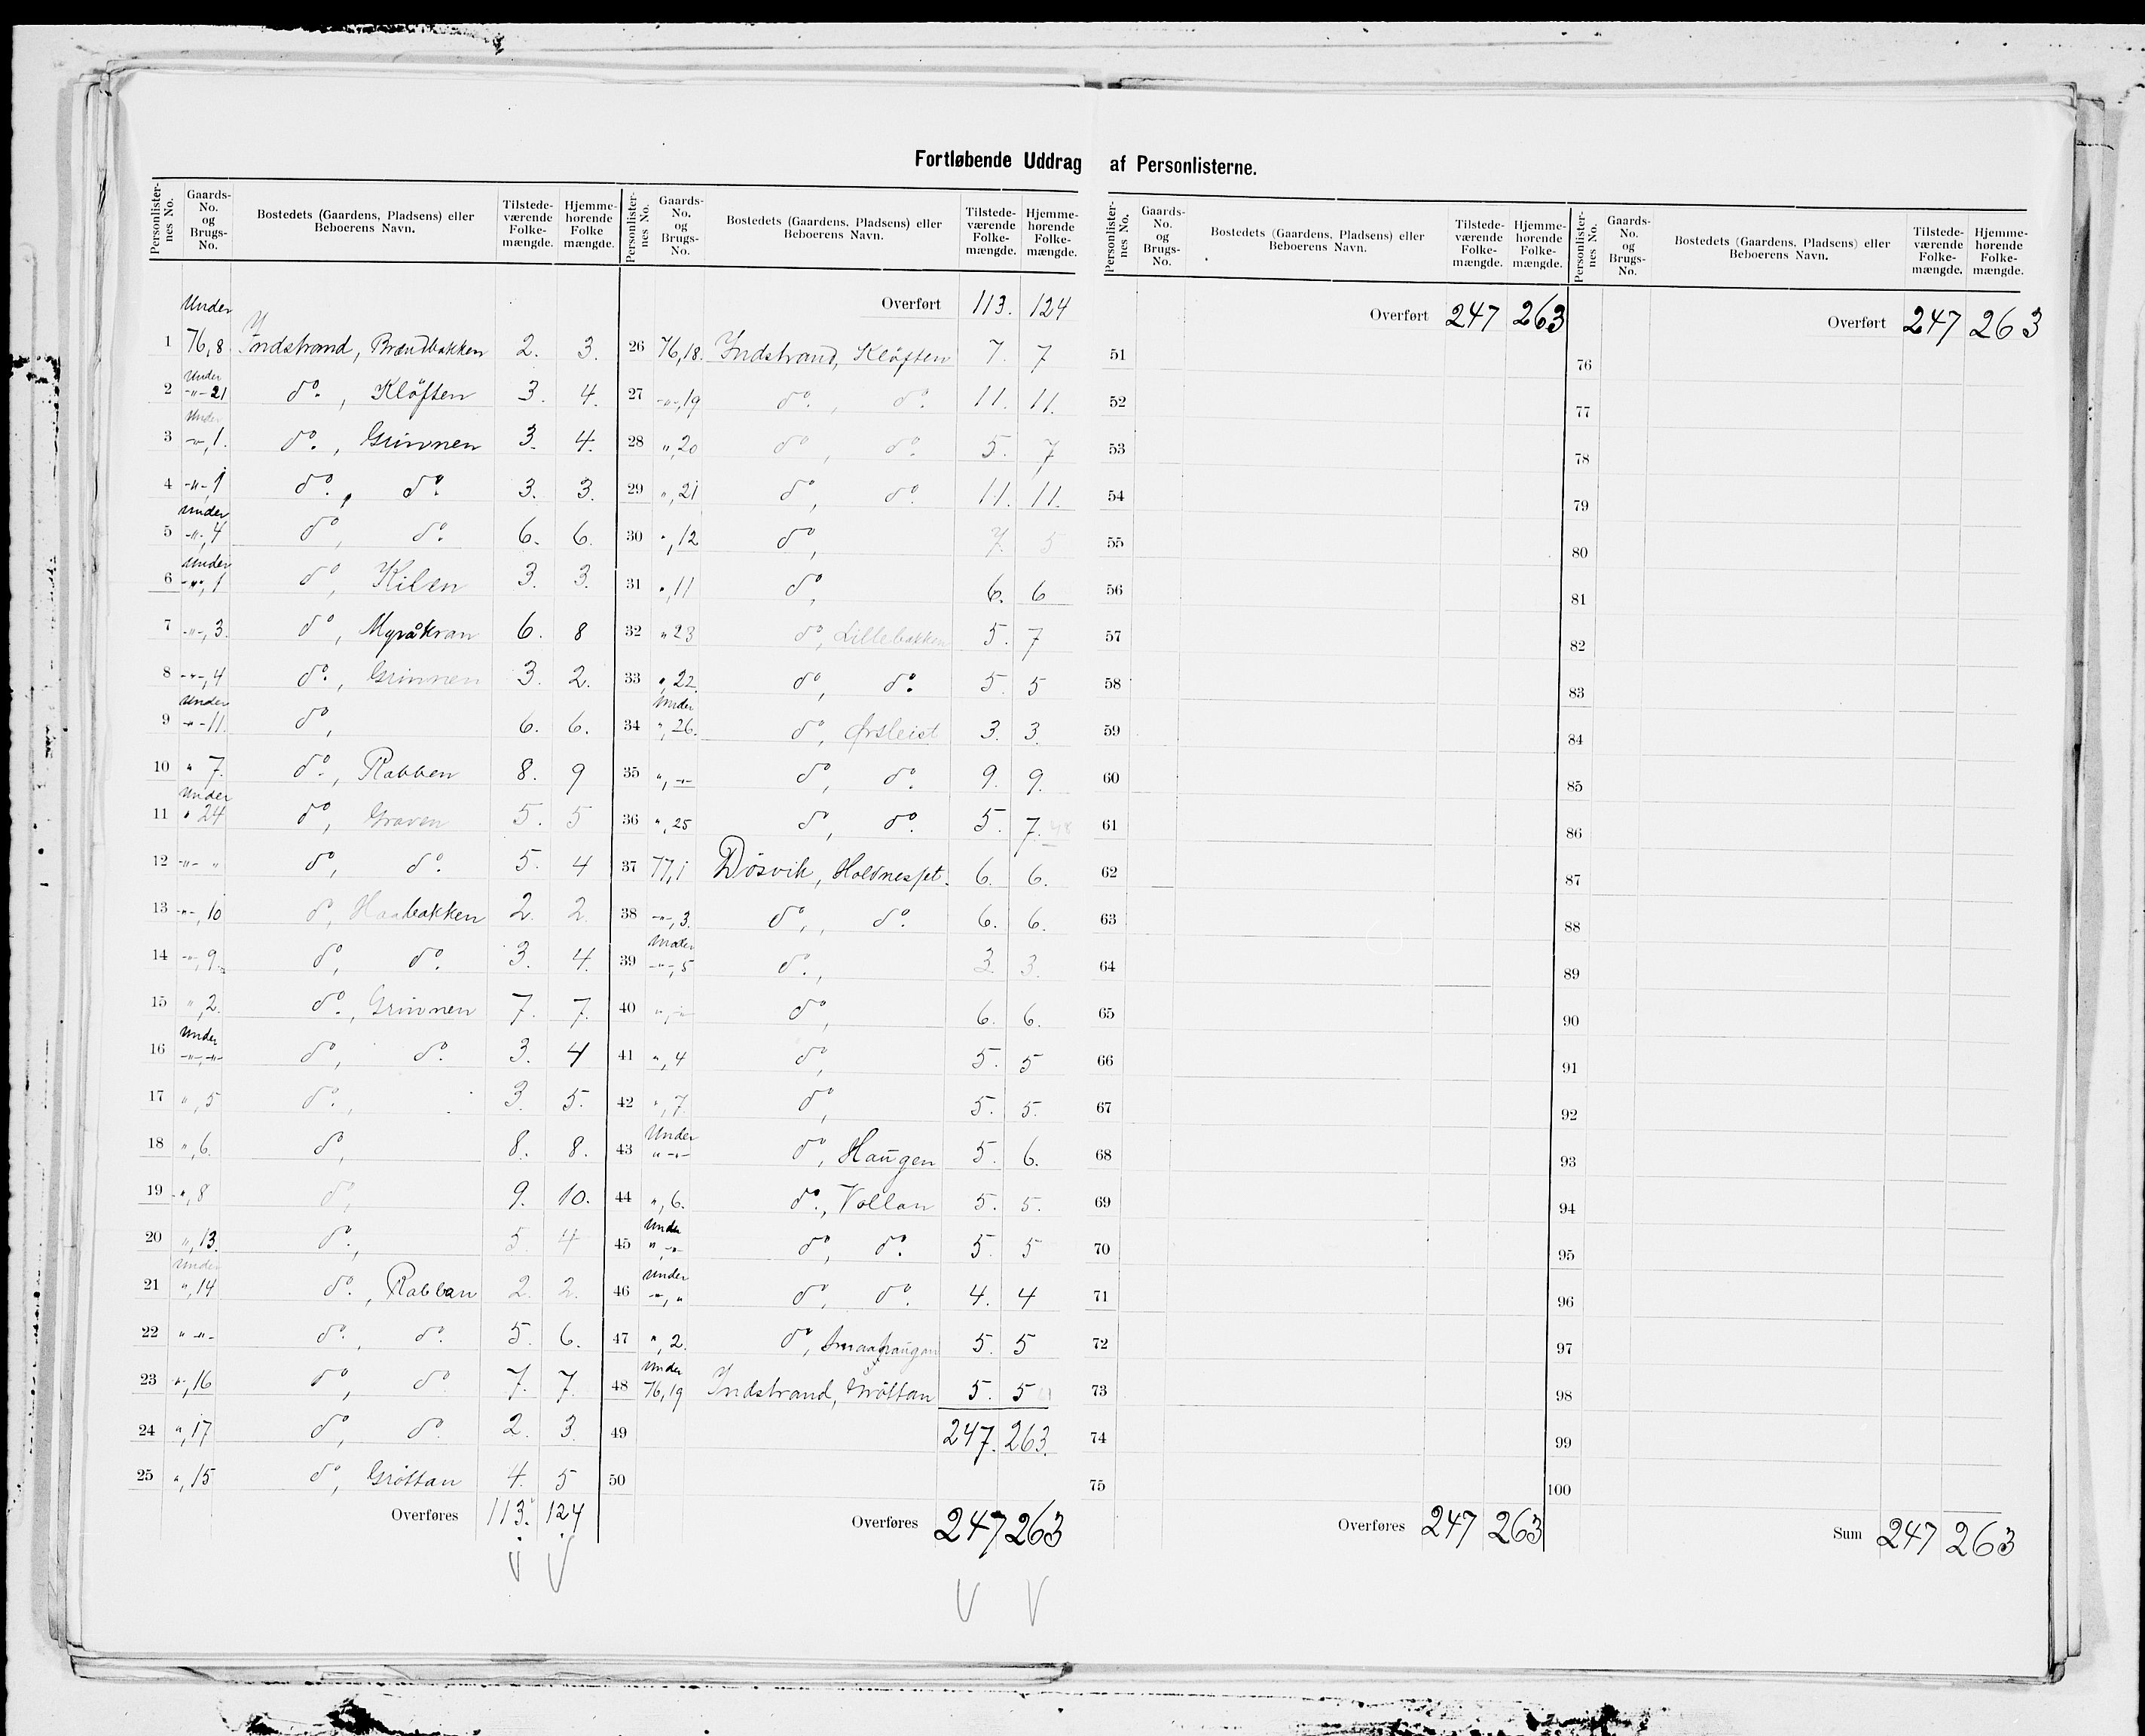 Fortløbende Uddrag af Personlisterne.
Personlisternes No. Gaards-No. og Brugs-No. Bostedets (Gaardens, Pladsens) eller Beboerens Navn. Tilstedeværende Folkemængde. Hjemmehørende Folkemængde.
Under
1 76,8 Indstrand, Brændbakken 2. 3.
Under
2 -"- 21 do., Kløften 3. 4.
Under
3 -"-, 1. do., Grinnen 3. 4.
4 -"-, 1 do., do. 3. 3.
Under
5 -"-, 4 do, do. 6. 6.
Under
6 -"-, 1 do, Kilen 3. 3.
7 -"-, 3. do, Myråkran 6. 8
8 -"-, 4 do., Grinnen 3. 2.
Under
9 -"- 11. do, 6. 6.
10 " 7. do., Rabben 8. 9
Under
11 " 24 do, Graven 5. 5
12 -"- " do, do. 5. 4
13 -"-, 10 do, Haabakken 2. 2.
14 -"-, 9. do, do. 3. 4.
15 ", 2. do., Grinnen 7. 7.
Under
16 -"-, -"- do, do. 3. 4
17 ", 5 do., 3. 5.
18 ", 6. do, 8. 8.
19 ", 8 do, 9. 10.
20 ", 13. do., 5. 4
Under
21 ", 14 do., Rabban 2. 2.
22 " -"- do., do. 5. 6.
23 ", 16 do, do 7. 7.
24 ", 17 do, do. 2. 3.
25 ", 15 do, Grøttan 4. 5
Overføres 113. 124
Personlisternes No. Gaards-No. og Brugs-No. Bostedets (Gaardens, Pladsens) eller Beboerens Navn. Tilstedeværende Folkemængde. Hjemmehørende Folkemængde.
Overført 113. 124
26 76,18. Indstrand, Kløften 7. 7
27 -"-, 19 do., do. 11. 11.
28 ", 20 do, do. 5. 7
29 ", 21 do, do. 11. 11.
30 ", 12 do, 7. 5
31 ", 11 do, 6. 6
32 " 23 do, Lillebakken 5. 7
33 ", 22. do, do. 5. 5
Under
34 ", 26. do, Ørsleist 3. 3.
35 ", -"- do, do. 9. 9.
36 ", 25 do, do. 5. 7.
37 77,1 Døsvik, 6. 6.
38 -"-, 3. do., do. 6. 6.
Under
39 -"-, 5 do., 3. 3.
40 ", -"- do, 6. 6.
41 ", 4 do, 5. 5
42 ", 7. do, 5. 5.
Under
43 " -"- do, Haugen 5. 6.
44 ", 6. do., Vollan 5. 5.
Under
45 ", -"- do, do. 5. 5
Under
46 -"-, " do, do. 4. 4
47 ", 2. do, Smaahaugan 5. 5
Under
48 76,19 Indstrand, Grøttan 5. 5
49 247. 263.
50
Overføres 247 263
Personlisternes No. Gaards-No. og Brugs-No. Bostedets (Gaardens, Pladsens) eller Beboerens Navn. Tilstedeværende Folkemængde. Hjemmehørende Folkemængde.
Overført 247 263
51
52
53
54
55
56
57
58
59
60
61
62
63
64
65
66
67
68
69
70
71
72
73
74
75
Overføres 247 263
Personlisternes No. Gaards-No. og Brugs-No. Bostedets (Gaardens, Pladsens) eller Beboerens Navn. Tilstedeværende Folkemængde. Hjemmehørende Folkemængde.
Overført 247 263
76
77
78
79
80
81
82
83
84
85
86
87
88
89
90
91
92
93
94
95
96
97
98
99
100
Sum 247 263